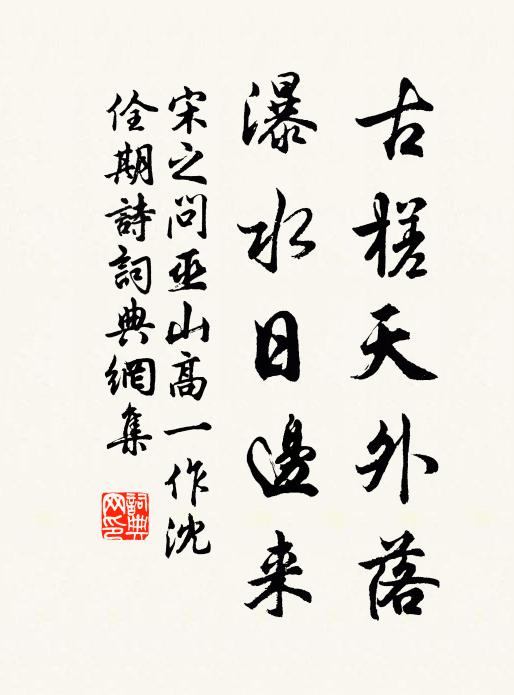 古槎天外落
瀑水日邊来
宋之问巫山高一作沈
佺期詩詞典網集
詞典网印